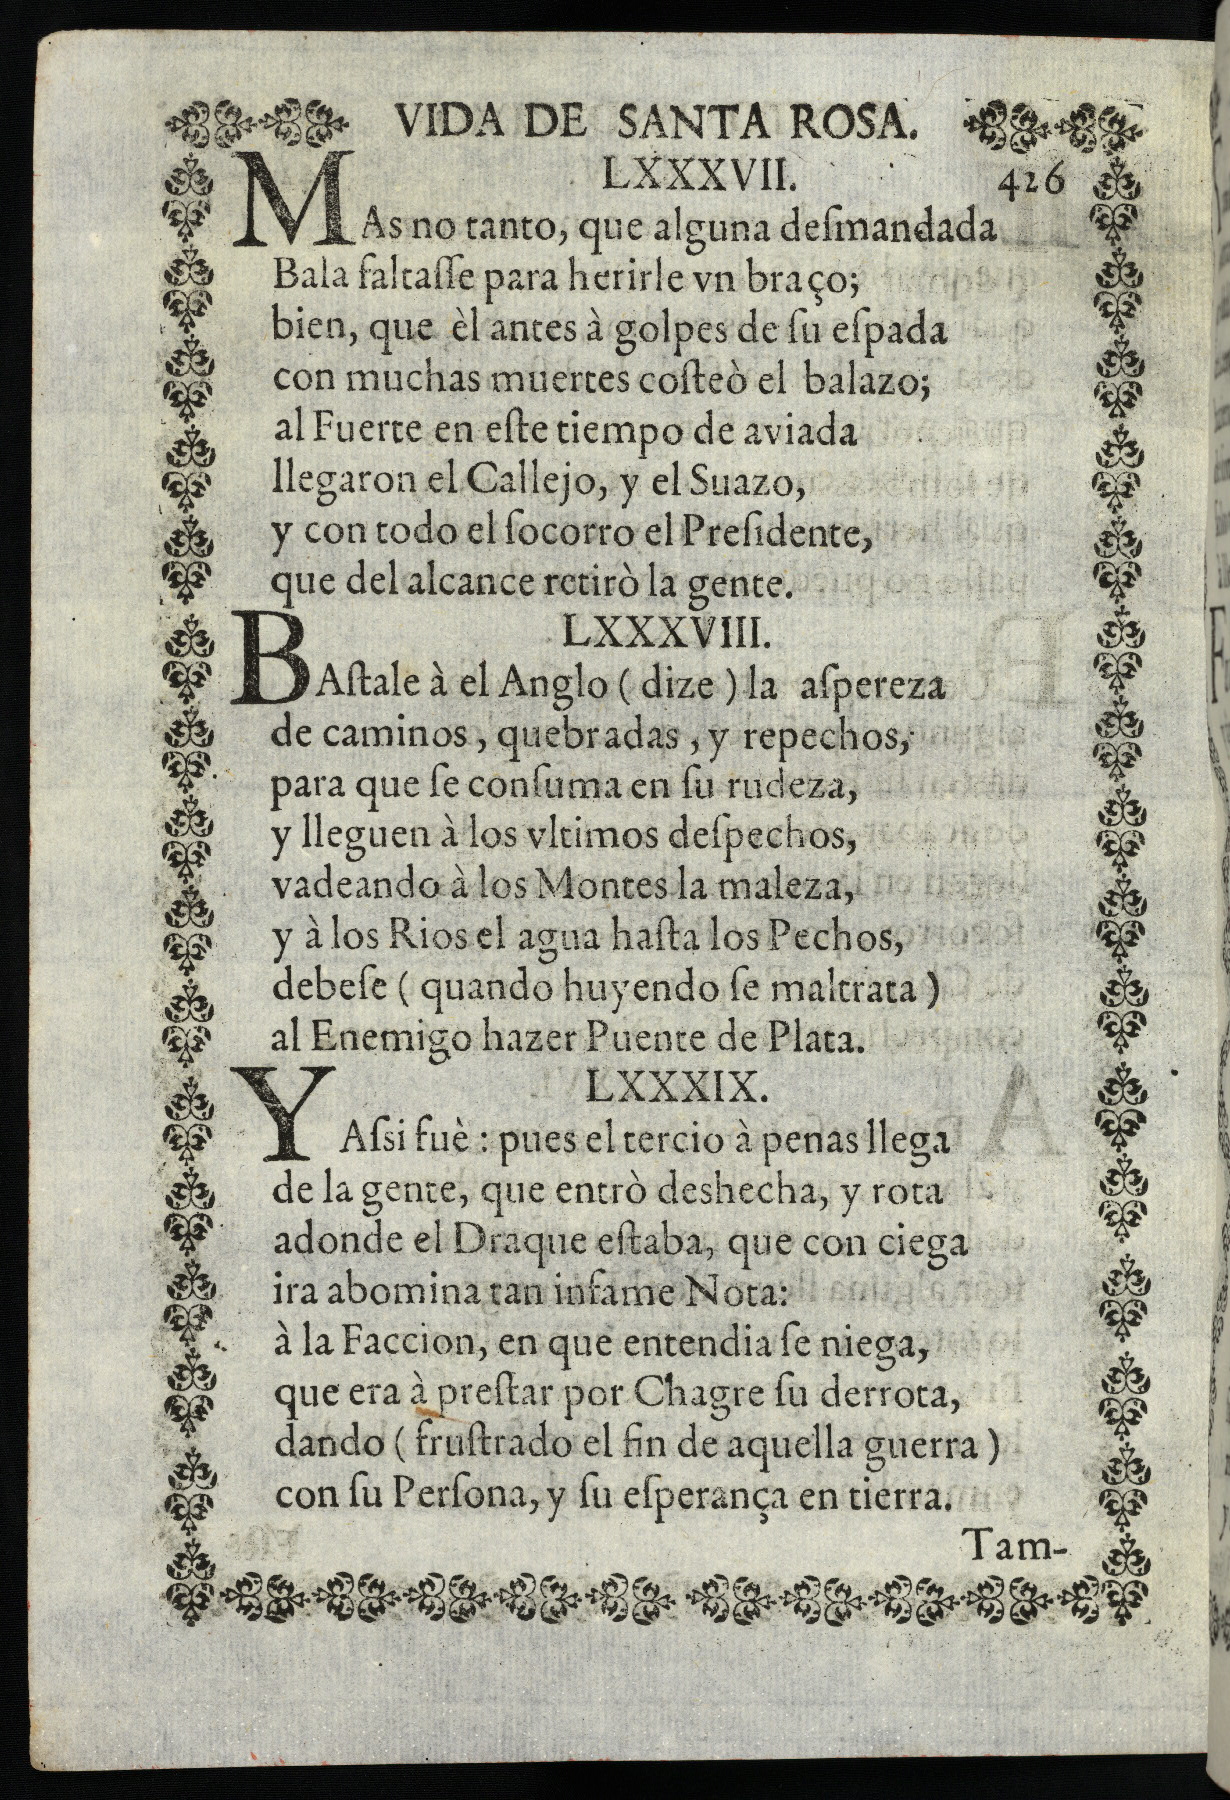 VIDA DE SANTA ROSA.
LXXXVII. 426
MAs no tanto, que alguna deſmandada
Bala faltaſſe para herirle vn braço;
bien, que èl antes à golpes de ſu eſpada
con muchas muertes coſteò el balazo;
al Fuerte en eſte tiempo de aviada
llegaron el Callejo, y el Suazo,
y con todo el ſocorro el Preſidente,
que del alcance retirò la gente.
LXXXVIII.
BAſtale à el Anglo ( dize ) la aſpereza
de caminos, quebradas, y repechos,
para que ſe conſuma en ſu rudeza,
y lleguen à los vltimos deſpechos,
vadeando à los Montes la maleza,
y à los Rios el agua haſta los Pechos,
debeſe ( quando huyendo ſe maltrata )
al Enemigo hazer Puente de Plata.
LXXXIX.
Y Aſsi fuè : pues el tercio à penas llega
de la gente, que entrò deshecha, y rota
adonde el Draque eſtaba, que con ciega
ira abomina tan infame Nota:
à la Faccion, en que entendia ſe niega,
que era à preſtar por Chagre ſu derrota,
dando ( fruſtrado el fin de aquella guerra )
con ſu Perſona, y ſu eſperança en tierra.
Tam-